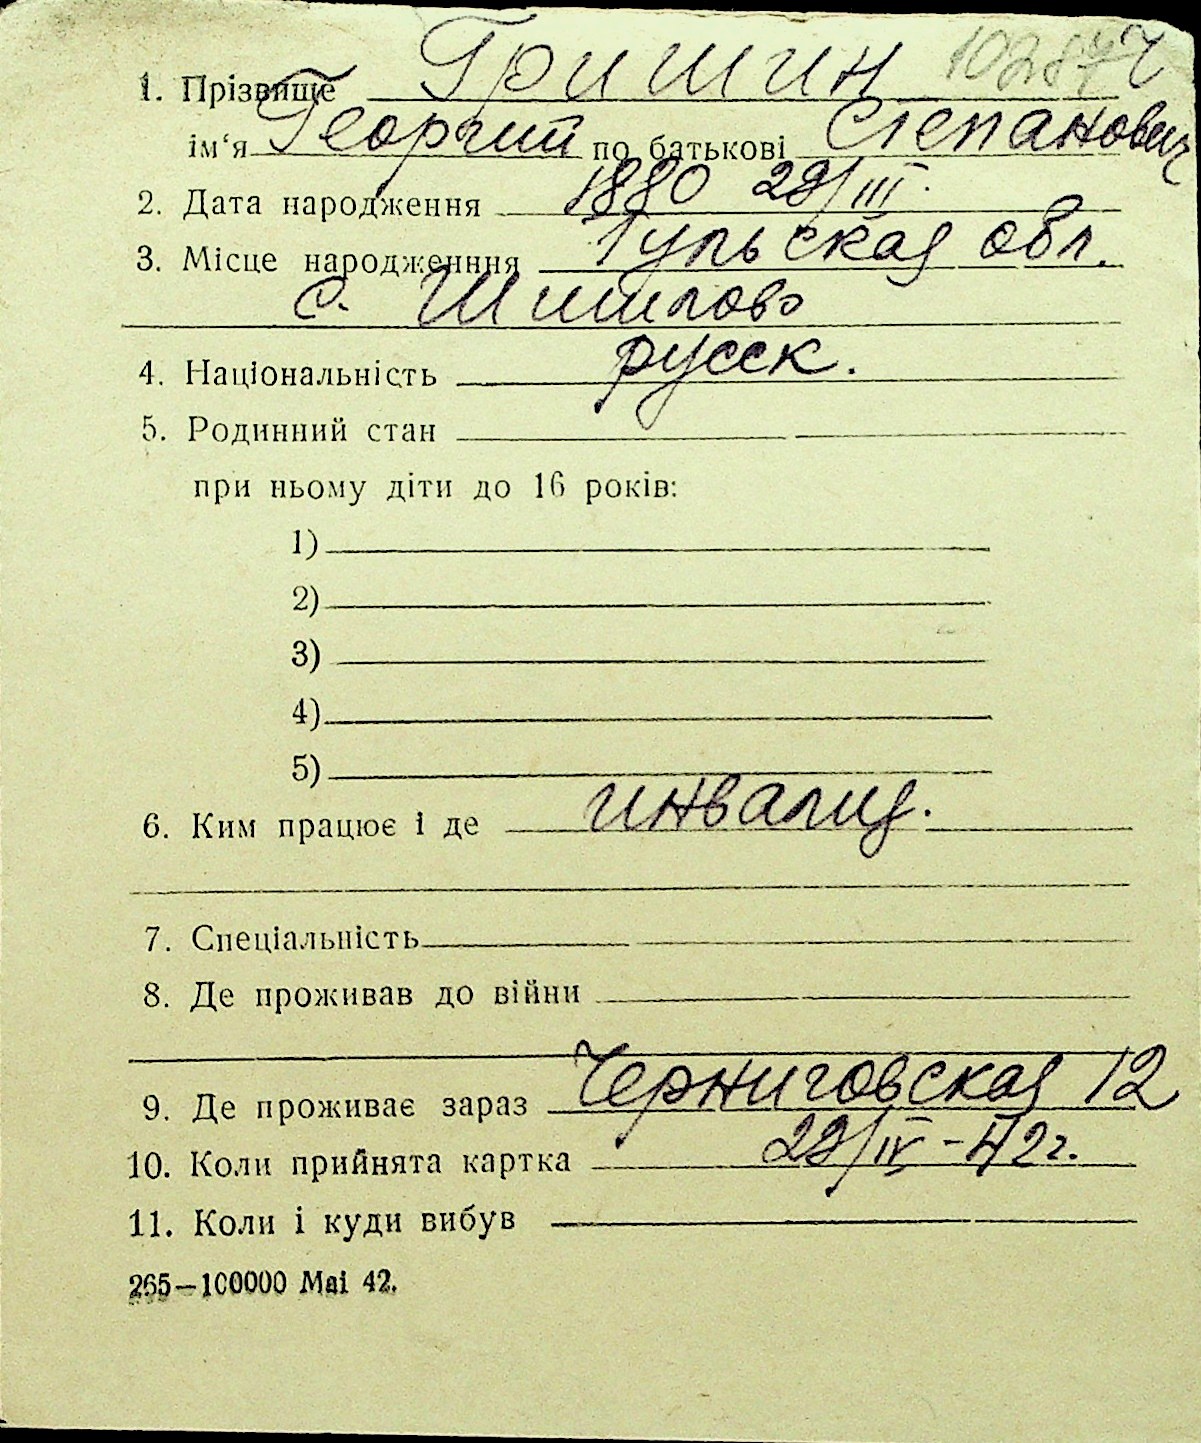 1. Прізвище Гришин
ім‘я Георгий по батькові Степанович
2. Дата народження 1880 28/III.
3. Місце народженння Тульская обл.
с. Шишлово
4. Національність русск.
5. Родинний стан
при ньому діти до 16 років:
1)
2)
3)
4)
5)
6. Ким працює і де инвалид.
7. Спеціальність
8. Де проживав до війни
9. Де проживає зараз Черниговская 12
10. Коли прийнята картка 28/IV-42г.
11. Коли і куди вибув
265—100000 Mai 42.